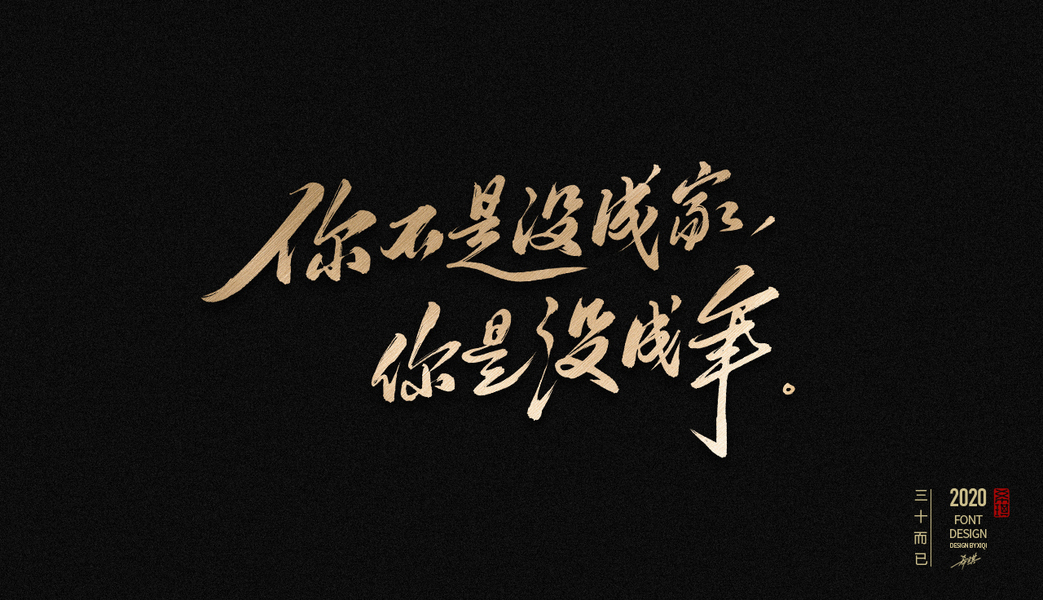 你不是没成家，
你是没成年。
三十而已
2020
FONT
DESIGN
DESIGN BY XIQI